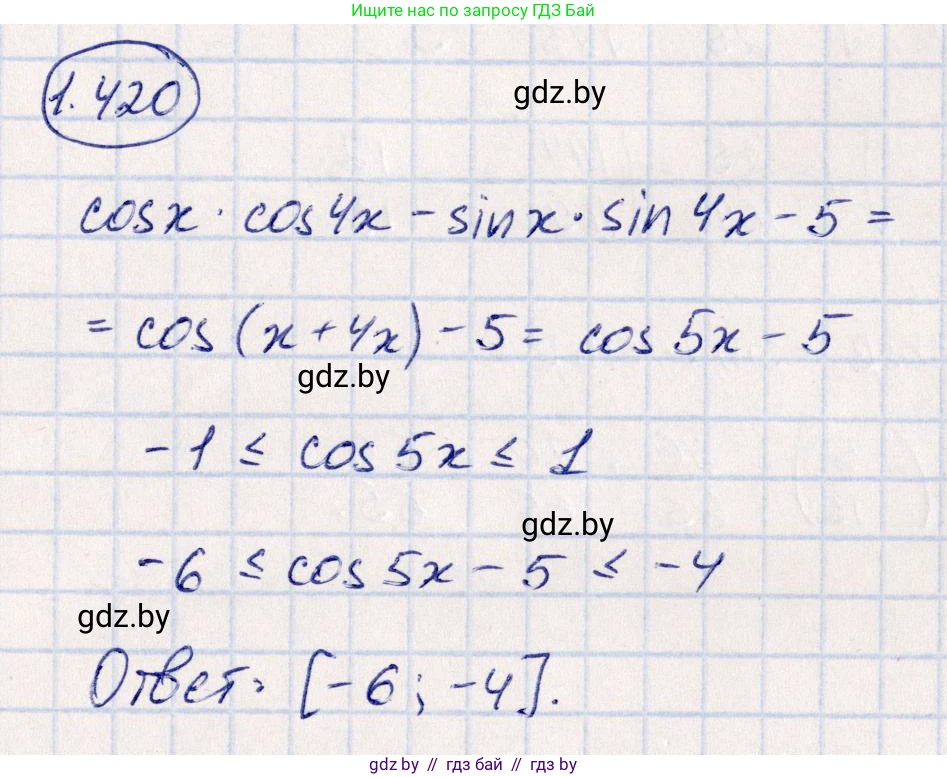 Ищите нас по запросу ГДЗ Бай
1.420
gdz.by
cosx · cos4x - sinx · sin4x - 5 =
= cos(x + 4x) - 5 = cos5x - 5
gdz.by
-1 ≤ cos5x ≤ 1
gdz.by
-6 ≤ cos5x - 5 ≤ -4
gdz.by
Ответ: [-6; -4].
gdz.by // гдз бай // gdz by